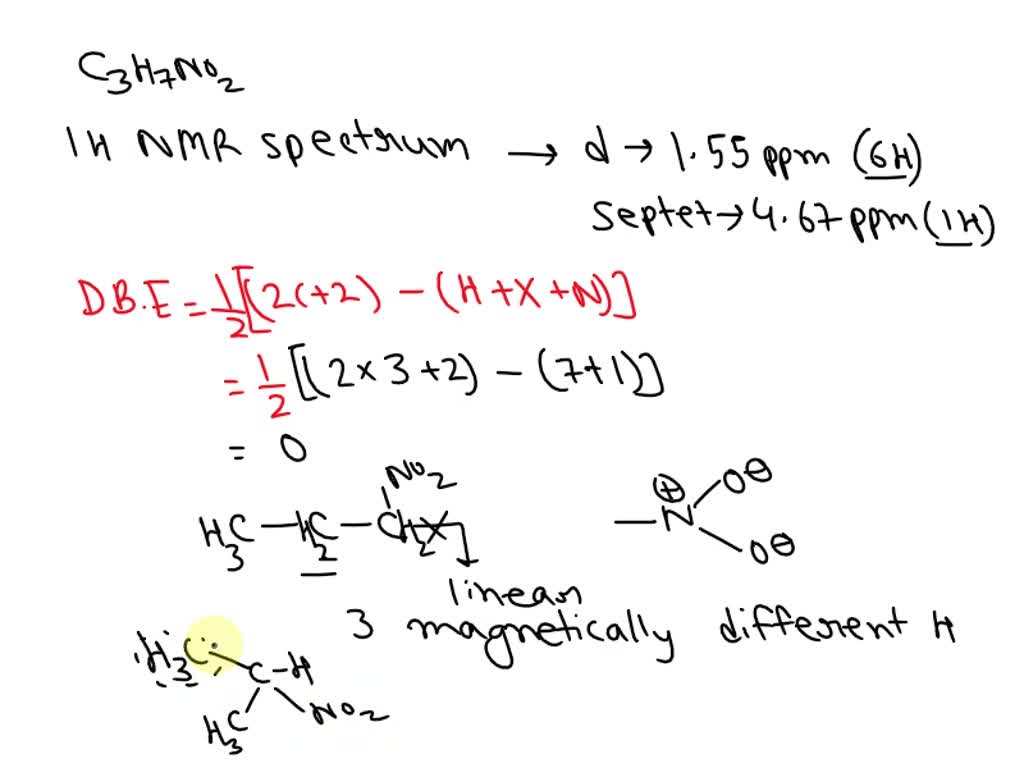 C3H7NO2
1H NMR spectrum → d → 1.55 ppm (6H)
Septet → 4.67 ppm (1H)
D.B.E = 1/2[(2C+2) - (H+X+N)]
= 1/2 [(2×3+2) - (7+1)]
= 0
NO2
H3C-H2C-CH2X
⊕ N O⊖ O⊖
linear
3 magnetically different H
H3C C-H
H3C NO2